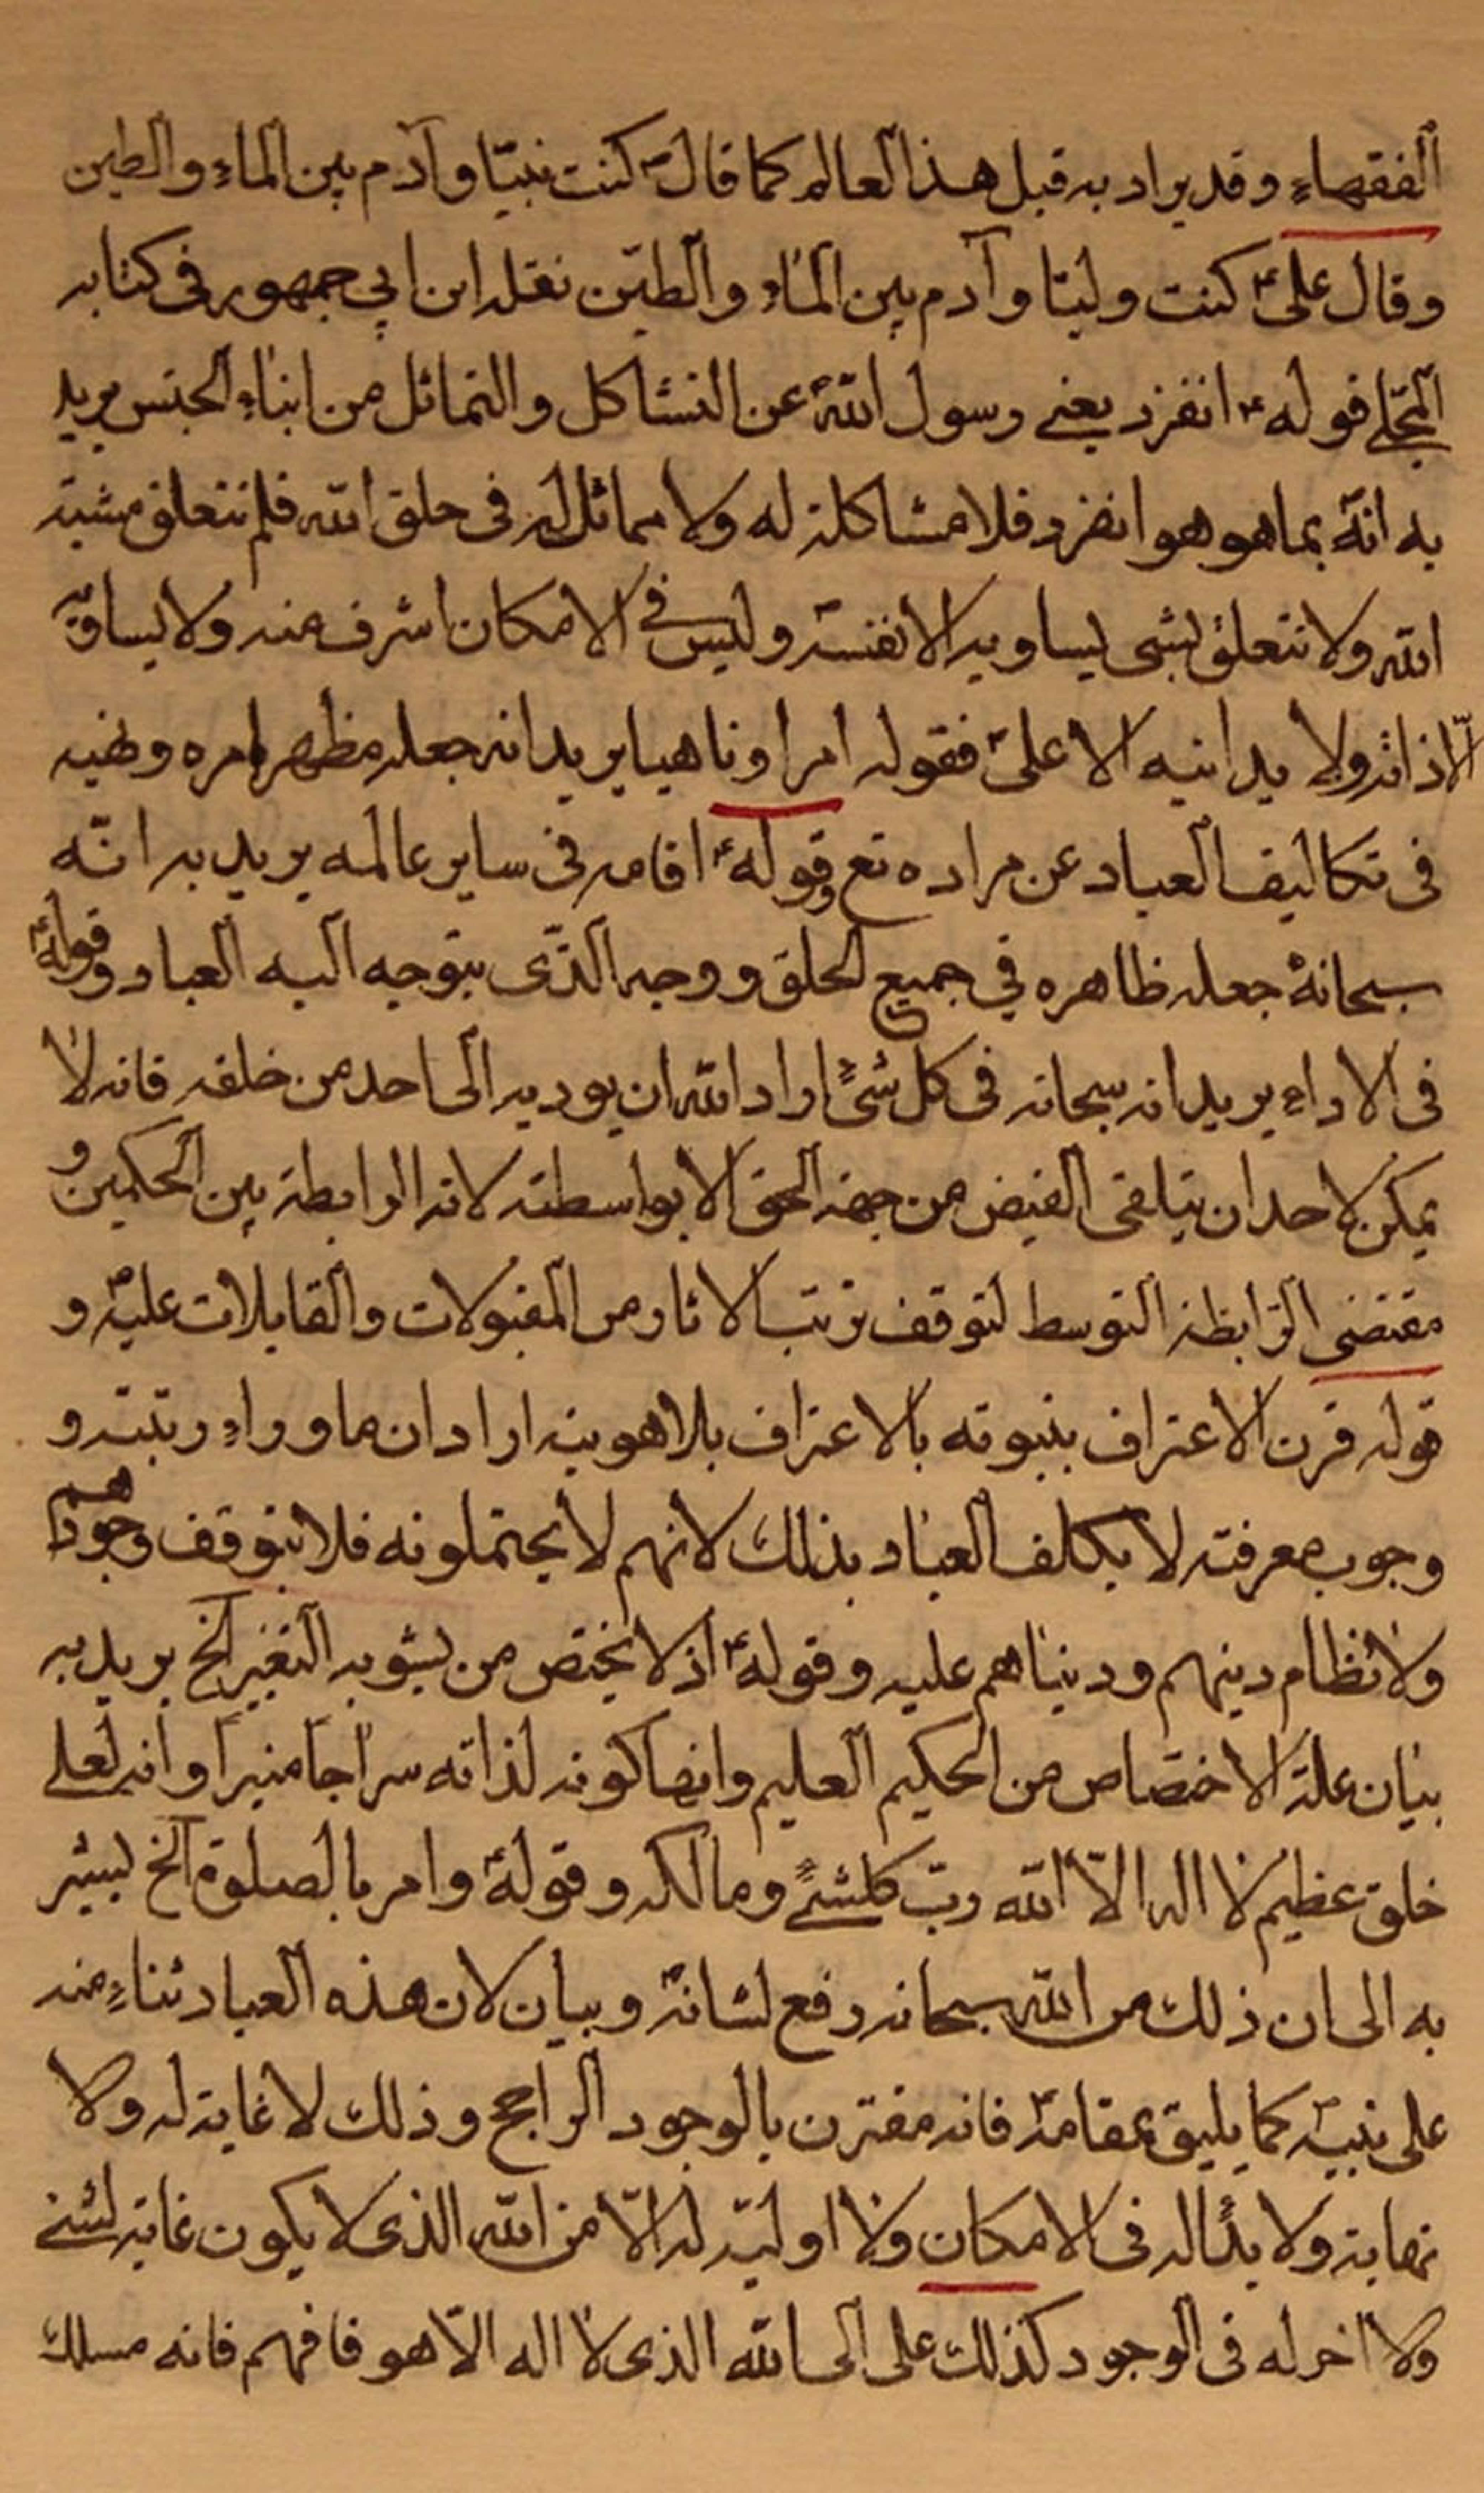 الفقهاء وقد يراد به قبل هذا العالم كما قال ص كنت نبيّا وآدم بين الماء والطين
وقال علي ع كنت وليّا وآدم بين الماء والطين نقله ابن ابي جمهور في كتابه
المجلي فوله ع انفرد يعني رسول الله ص عن التشاكل والتماثل من ابناء الجنس يريد
به انه بما هو هو انفرد فلا مشاكلة له ولا مماثل له في خلق الله فلم تتعلق مشية
الله ولا تتعلق بشى يساويه الا نفسه وليس في الامكان اشرف منه ولا يساويه
الّا ذاته ولا يدانيه الا علي فقوله امرا وناهيا يريد انه جعله مظهر امره ونهيه
في تكاليف العباد عن مراده تع وقوله ع اقامه في ساير عالمه يريد به انّه
سبحانه جعله ظاهره في جميع الخلق ووجهه الذّى يتوجه اليه العباد وقوله ع
في الاداء يريد انه سبحانه في كل شئ اراد الله ان يوديه الى احد من خلقه فانه لا
يمكن لاحد ان يتلقى الفيض من جهة الحق الا بواسطته لانه الرابطة بين الحكمين و
مقتضى الرّابطة التوسط لتوقف ترتب الاثار من المقبولات والقابلات عليه و
قوله قرن الاعتراف بنبوته بالاعتراف بلاهويته اراد ان ما وراء رتبته و
وجوب معرفته لا يكلف العباد بذلك لانهم لا يحتملونه فلا يتوقف وجودهم
ولا نظام دينهم ودنياهم عليه وقوله ع اذ لا يختص من يشوبه التغير الخ يريد به
بيان علة الاختصاص من الحكيم العليم وانها كونه لذاته سراجا منيرا وانه لعلى
خلق عظيم لا اله الّا الله ربّ كلشئ ومالكه وقوله ع وامر بالصلوة الخ ليشير
به الى ان ذلك من الله سبحانه رفع لشانه وبيان لان هذه العباد ثناء منه
على نبيه ص كما يليق بمقامه فانه مقترن بالوجود الراجح وذلك لا غاية له ولا
نهاية ولا بدأ له في الامكان ولا اولية له الّا من الله الذى لا يكون غاية لشئ
ولا اخر له في الوجود كذلك على الى الله الذى لا اله الّا هو فافهم فانه مسلك